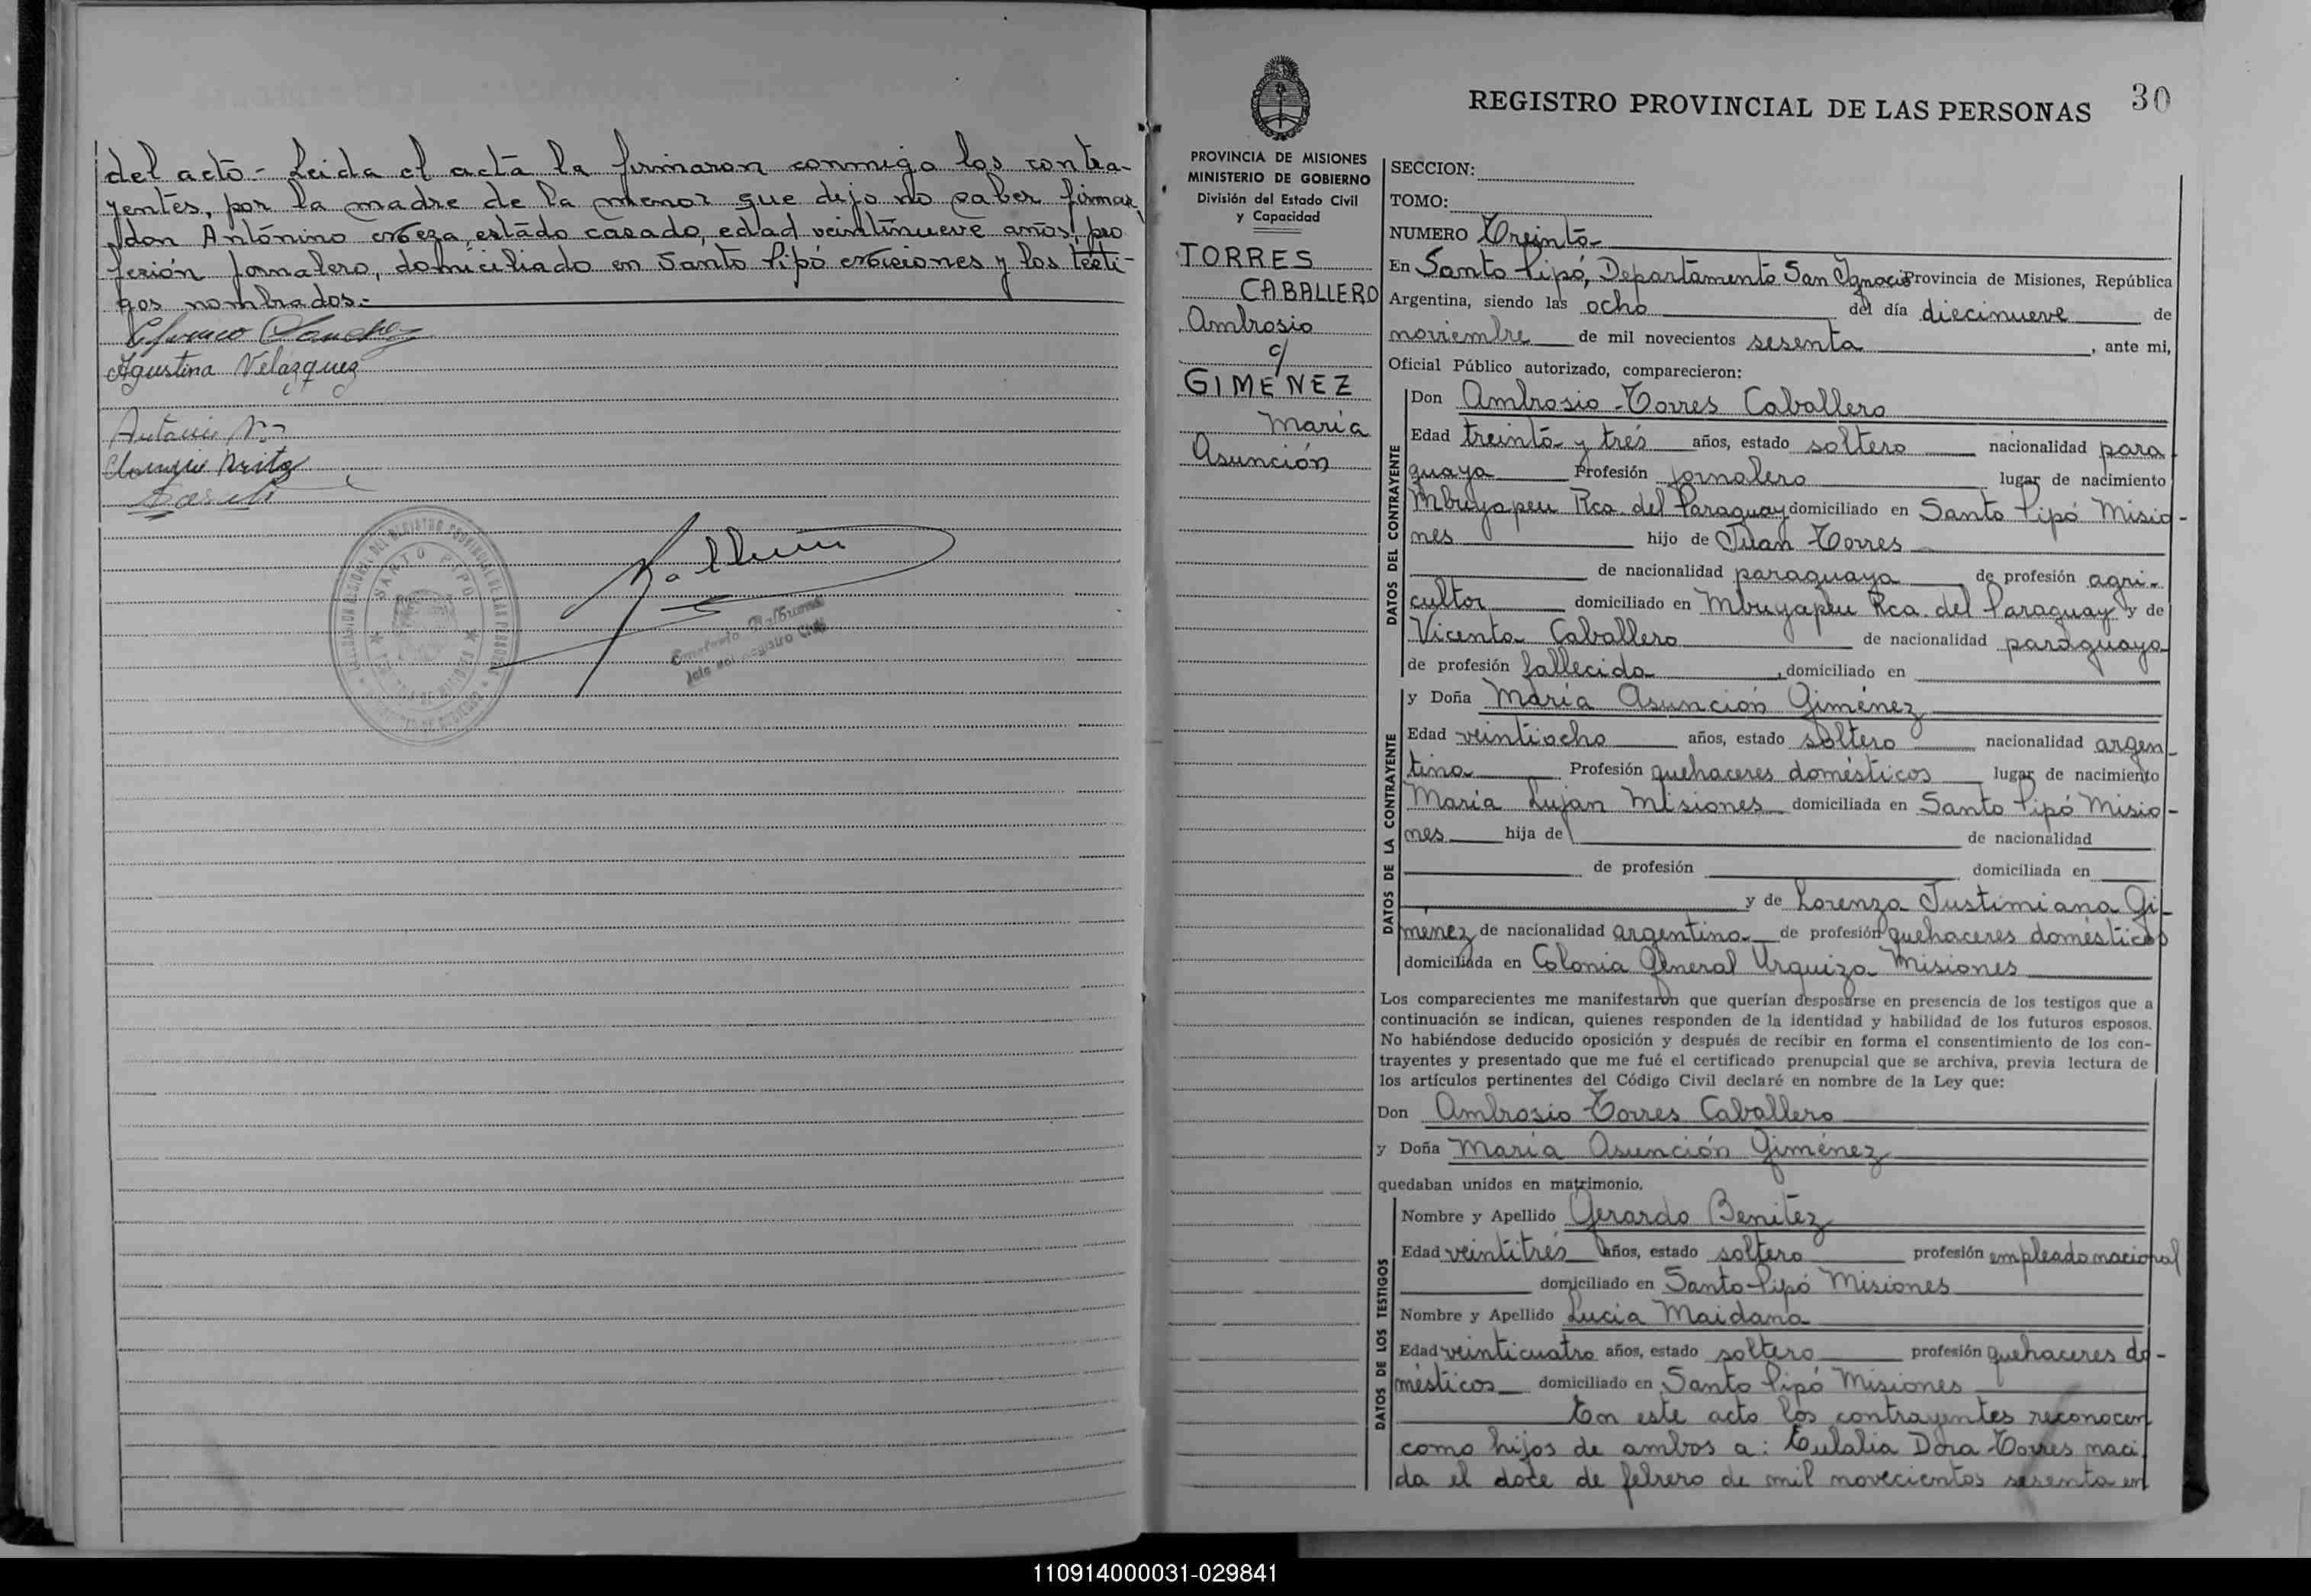 del acto.- Leida el acta la firmaron conmigo los contra-
yentes, por la madre de la menor que dijo no saber firmar,
don Antonino Meza, estado casado, edad veintinueve años, pro
fesión jornalero, domiciliado en Santo Pipó Misiones y los testi-
gos nombrados.-
Sanchez
Agustina Velazquez
SANTO PIPO
Jefe del Registro Civil
REGISTRO PROVINCIAL DE LAS PERSONAS 30
PROVINCIA DE MISIONES
MINISTERIO DE GOBIERNO
División del Estado Civil
y Capacidad
TORRES
CABALLERO
Ambrosio
c/
GIMENEZ
María
Asunción
SECCION:
TOMO:
NUMERO Treinta-
En Santo Pipó, Departamento San Ignacio Provincia de Misiones, República
Argentina, siendo las ocho del día diecinueve de
noviembre de mil novecientos sesenta, ante mi,
Oficial Público autorizado, comparecieron:
DATOS DEL CONTRAYENTE
Don Ambrosio Torres Caballero
Edad treinta y tres años, estado soltero nacionalidad para
guaya Profesión jornalero lugar de nacimiento
Mbuyapeu Rca. del Paraguay domiciliado en Santo Pipó Misio-
nes hijo de Juan Torres
de nacionalidad paraguaya de profesión agri-
cultor domiciliado en Mbuyapeu Rca. del Paraguay y de
Vicenta Caballero de nacionalidad paraguaya
de profesión fallecida, domiciliado en
DATOS DE LA CONTRAYENTE
y Doña María Asunción Giménez
Edad veintiocho años, estado soltero nacionalidad argen-
tina Profesión quehaceres domésticos lugar de nacimiento
María Lujan Misiones domiciliada en Santo Pipó Misio-
nes hija de de nacionalidad
de profesión domiciliada en
y de Lorenza Justimiana Gi-
menez de nacionalidad argentina de profesión quehaceres domésticos
domiciliada en Colonia General Urquiza Misiones
Los comparecientes me manifestaron que querían desposarse en presencia de los testigos que a
continuación se indican, quienes responden de la identidad y habilidad de los futuros esposos.
No habiéndose deducido oposición y después de recibir en forma el consentimiento de los con-
trayentes y presentado que me fué el certificado prenupcial que se archiva, previa lectura de
los artículos pertinentes del Código Civil declaré en nombre de la Ley que:
Don Ambrosio Torres Caballero
y Doña María Asunción Giménez
quedaban unidos en matrimonio.
DATOS DE LOS TESTIGOS
Nombre y Apellido Gerardo Benitez
Edad veintitrés años, estado soltero profesión empleado nacional
domiciliado en Santo Pipó Misiones
Nombre y Apellido Lucia Maidana
Edad veinticuatro años, estado soltero profesión quehaceres do-
mésticos domiciliado en Santo Pipó Misiones
En este acto los contrayentes reconocen
como hijos de ambos a: Eulalia Dora Torres naci
da el doce de febrero de mil novecientos sesenta en
110914000031-029841